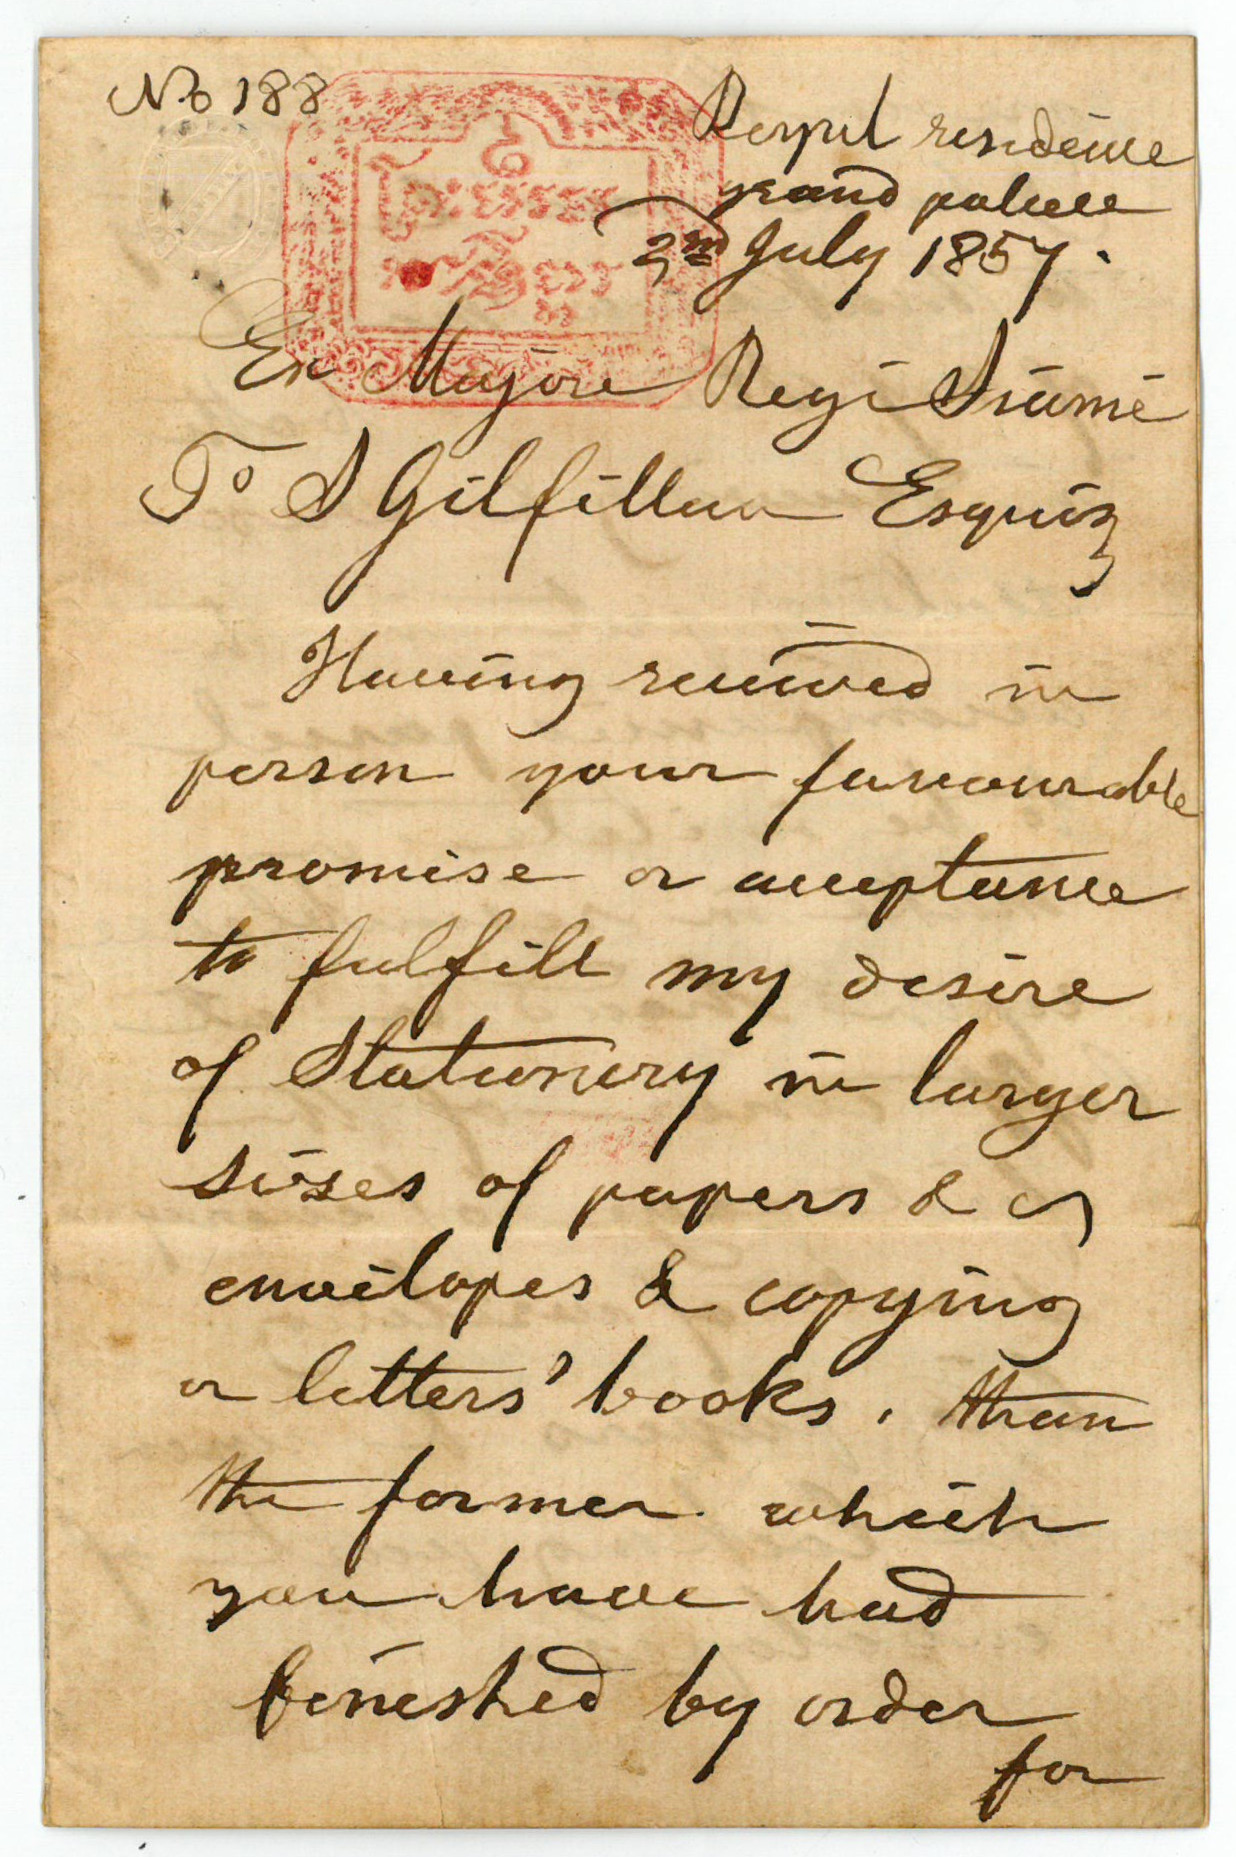 No 188
Royal residence
grand palace
2nd July 1857.
Ex Majore Regi Siami
To S Gilfillan Esquire
Having received in
person your favourable
promise or acceptance
to fulfill my desire
of Stationery in larger
sizes of papers & of
envelopes & copying
or letters' books, than
the former which
you have had
finished by order
for